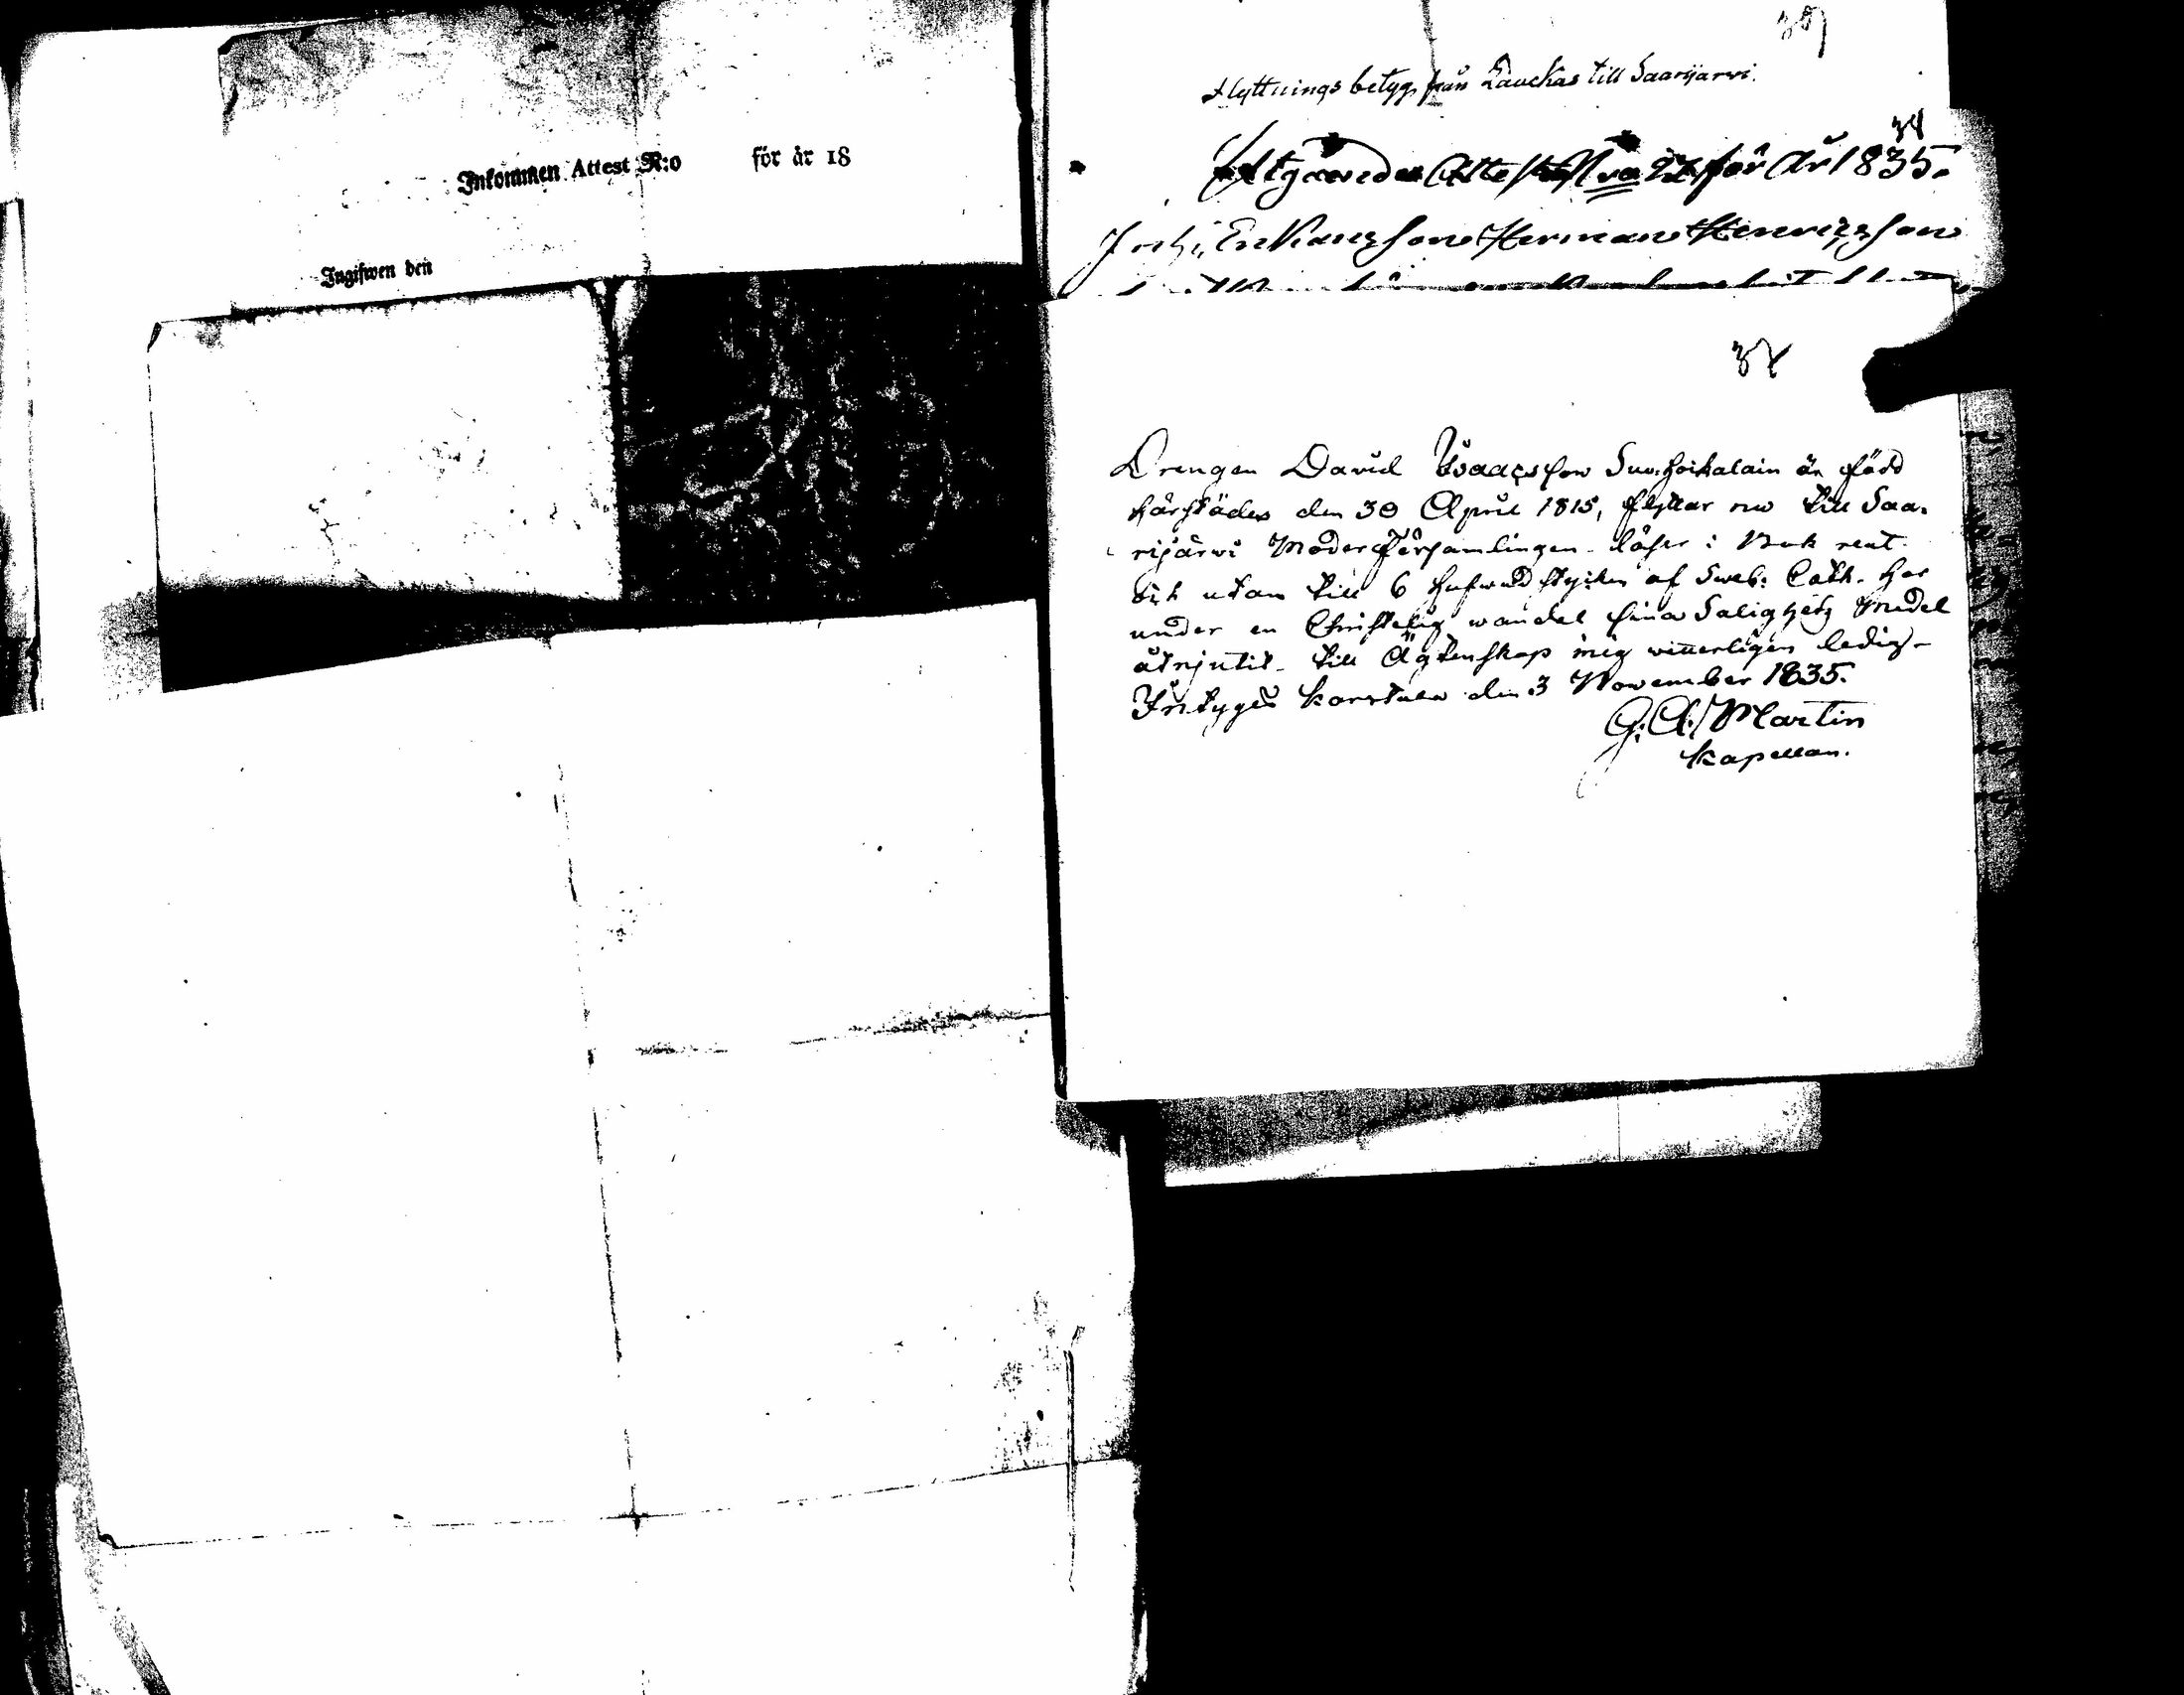 Inkommen Attest N:o för år 18
Ingifwen den
Flyttnings betyg från Laukas till Saarijarvi.
Utgåendes Attest Nro för År 1835.
Enkans Son Herman Henricsson
37
Drengen David Isaacsson är född
härstädes den 30 April 1815, flyttar nu till Saa-
rijärvi Moderförsamlingen - läser i Bok rent
och utan till 6 hufvudstycken af Sweb: Cath. har
under en Christelig wandel sina Salighets Medel
åtnjutit - till Ägtenskap mig witterligen ledig -
Intygar Karstula den 3 November 1835.
G. A. Martin
Kapellan.